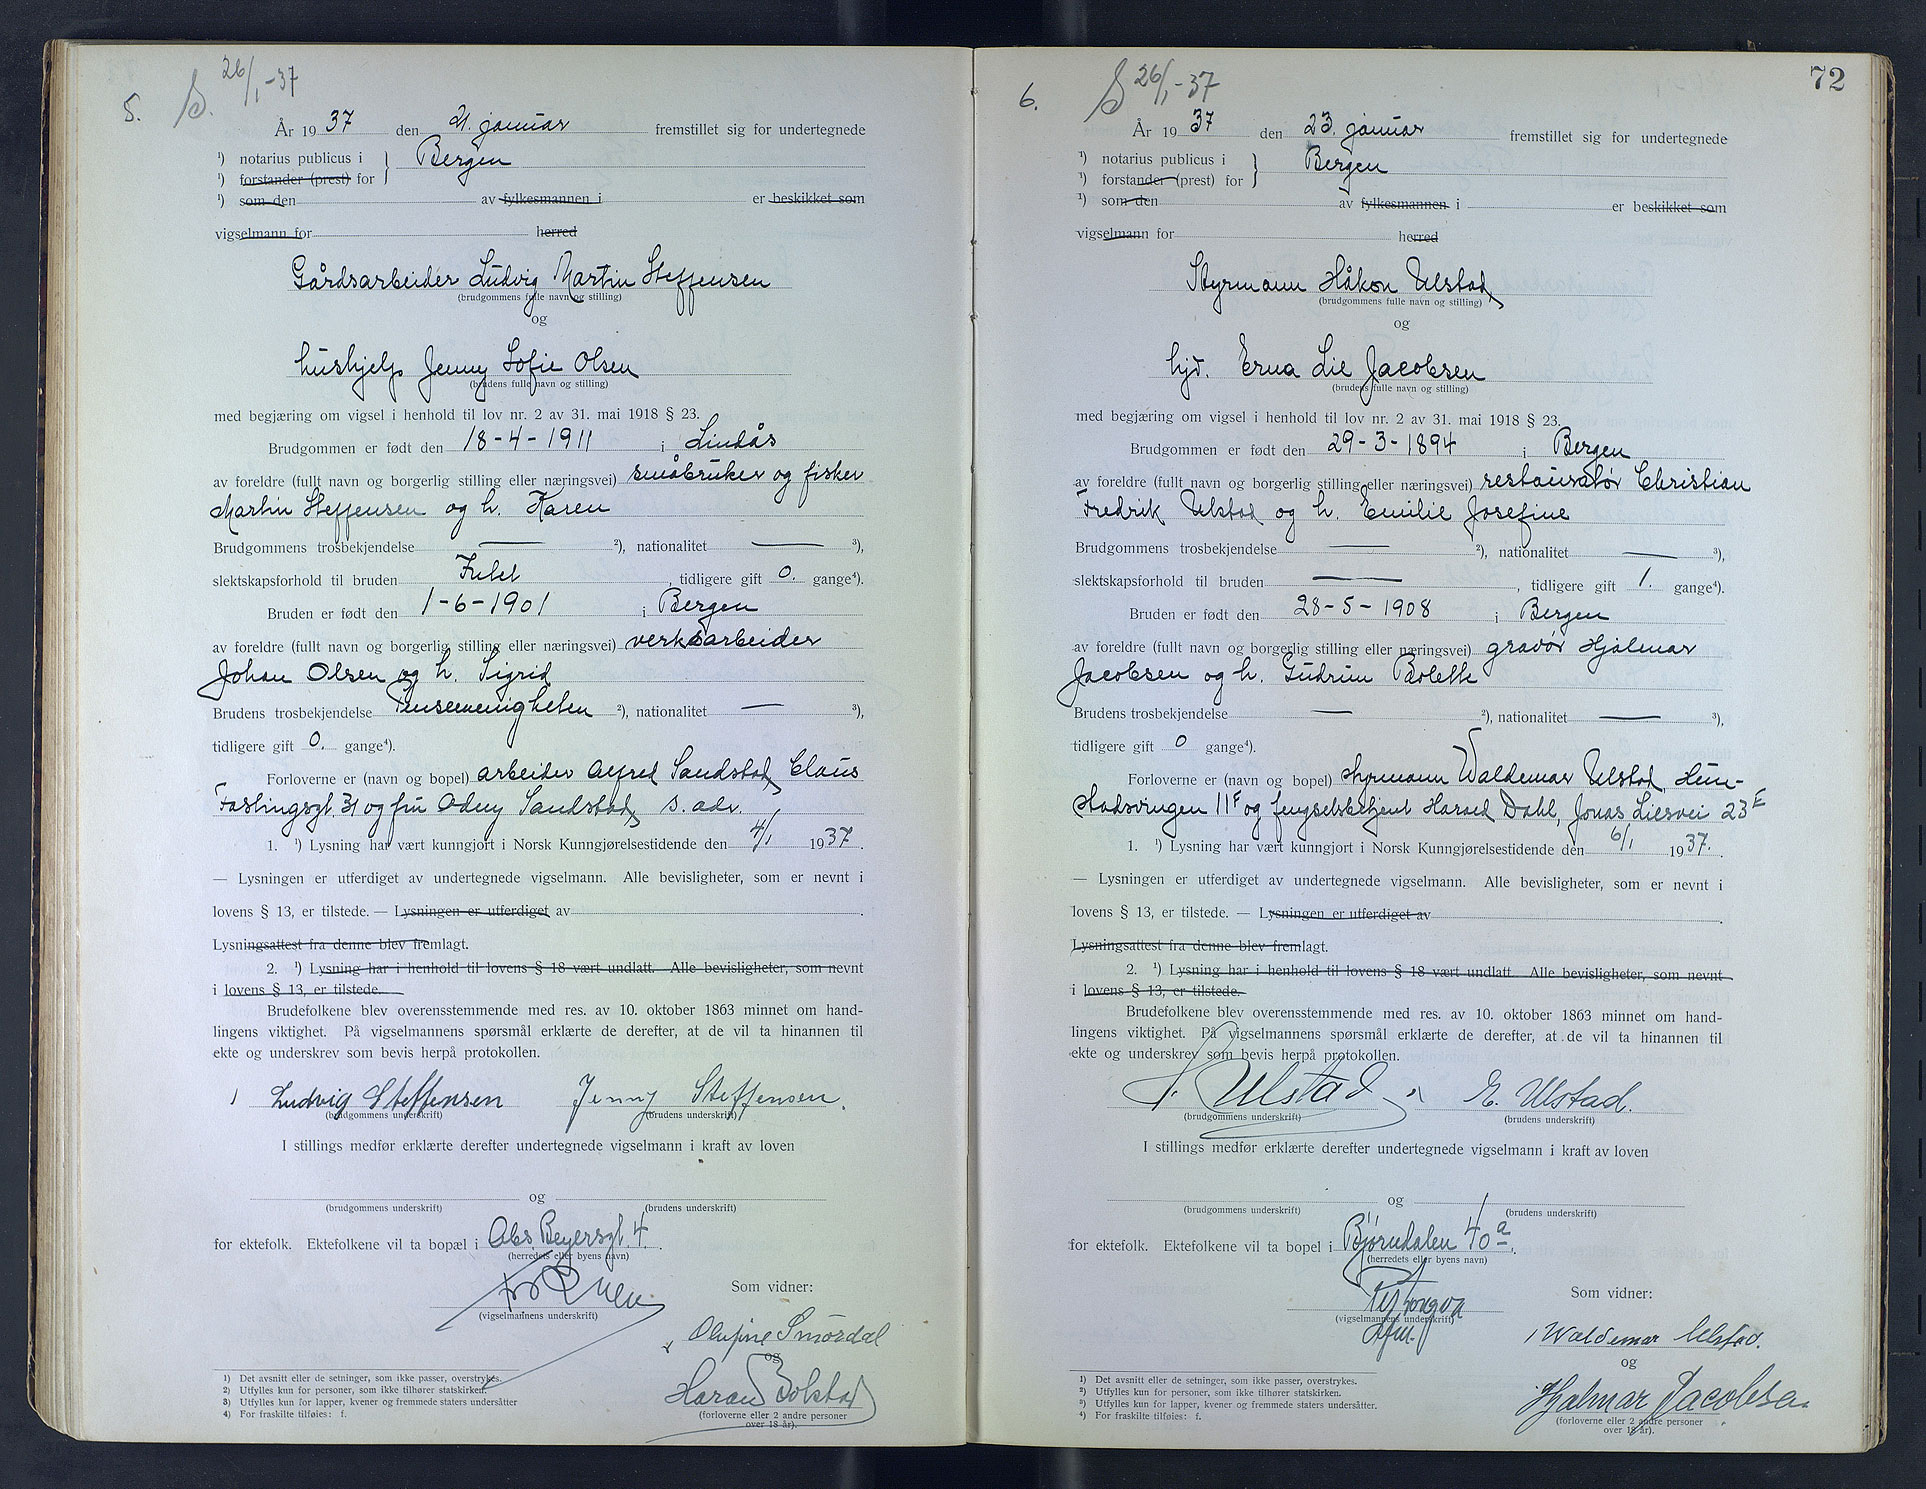 5. S. 26/1-37
År 1937 den 21. januar fremstillet sig for undertegnede
¹) notarius publicus i } Bergen
¹) forstander (prest) for
¹) som den av fylkesmannen i er beskikket som
vigselmann for herred
Gårdsarbeider Ludvig Martin Steffensen
(brudgommens fulle navn og stilling)
og
hushjelp Jenny Sofie Olsen
(brudens fulle navn og stilling)
med begjæring om vigsel i henhold til lov nr. 2 av 31. mai 1918 § 23.
Brudgommen er født den 18-4-1911 i Lindås
av foreldre (fullt navn og borgerlig stilling eller næringsvei) småbruker og fisker
Martin Steffensen og h. Karen
Brudgommens trosbekjendelse — ²), nationalitet — ³),
slektskapsforhold til bruden Intet, tidligere gift 0. gange⁴).
Bruden er født den 1-6-1901 i Bergen
av foreldre (fullt navn og borgerlig stilling eller næringsvei) verksarbeider
Johan Olsen og h. Sigrid
Brudens trosbekjendelse Pinsemenigheten ²), nationalitet — ³),
tidligere gift 0. gange⁴).
Forloverne er (navn og bopel) arbeider Alfred Sandstad, Claus
Fastingsgt. 31 og fru Odny Sandstad, s. adr.
1. ¹) Lysning har vært kunngjort i Norsk Kunngjørelsestidende den 4/1 1937.
— Lysningen er utferdiget av undertegnede vigselmann. Alle bevisligheter, som er nevnt i
lovens § 13, er tilstede. — Lysningen er utferdiget av .
Lysningsattest fra denne blev fremlagt.
2. ¹) Lysning har i henhold til lovens § 18 vært undlatt. Alle bevisligheter, som nevnt
i lovens § 13, er tilstede.
Brudefolkene blev overensstemmende med res. av 10. oktober 1863 minnet om hand-
lingens viktighet. På vigselmannens spørsmål erklærte de derefter, at de vil ta hinannen til
ekte og underskrev som bevis herpå protokollen.
Ludvig Steffensen Jenny Steffensen.
(brudgommens underskrift) (brudens underskrift)
I stillings medfør erklærte derefter undertegnede vigselmann i kraft av loven
og
(brudgommens underskrift) (brudens underskrift)
for ektefolk. Ektefolkene vil ta bopæl i Abs. Beyersgt. 4.
(herredets eller byens navn)
Som vidner:
(vigselmannens underskrift)
Olufine Smördal
og
Harald Bolstad
(forloverne eller 2 andre personer
over 18 år).
1) Det avsnitt eller de setninger, som ikke passer, overstrykes.
2) Utfylles kun for personer, som ikke tilhører statskirken.
3) Utfylles kun for lapper, kvener og fremmede staters undersåtter
4) For fraskilte tilføies: f.
72
6. S 26/1-37
År 1937 den 23. januar fremstillet sig for undertegnede
¹) notarius publicus i } Bergen
¹) forstander (prest) for
¹) som den av fylkesmannen i er beskikket som
vigselmann for herred
Styrmann Håkon Ulstad
(brudgommens fulle navn og stilling)
og
hjd. Erna Lie Jacobsen
(brudens fulle navn og stilling)
med begjæring om vigsel i henhold til lov nr. 2 av 31. mai 1918 § 23.
Brudgommen er født den 29-3-1894 i Bergen
av foreldre (fullt navn og borgerlig stilling eller næringsvei) restauratør Christian
Fredrik Ulstad og h. Emilie Josefine
Brudgommens trosbekjendelse — ²), nationalitet — ³),
slektskapsforhold til bruden —, tidligere gift 1. gange⁴).
Bruden er født den 28-5-1908 i Bergen
av foreldre (fullt navn og borgerlig stilling eller næringsvei) gravør Hjalmar
Jacobsen og h. Gudrun Bolette
Brudens trosbekjendelse — ²), nationalitet — ³),
tidligere gift 0 gange⁴).
Forloverne er (navn og bopel) styrmann Waldemar Ulstad,
11F og fengselsbetjent Harald Dahl, Jonas Liesvei 23E
1. ¹) Lysning har vært kunngjort i Norsk Kunngjørelsestidende den 6/1 1937.
— Lysningen er utferdiget av undertegnede vigselmann. Alle bevisligheter, som er nevnt i
lovens § 13, er tilstede. — Lysningen er utferdiget av .
Lysningsattest fra denne blev fremlagt.
2. ¹) Lysning har i henhold til lovens § 18 vært undlatt. Alle bevisligheter, som nevnt
i lovens § 13, er tilstede.
Brudefolkene blev overensstemmende med res. av 10. oktober 1863 minnet om hand-
lingens viktighet. På vigselmannens spørsmål erklærte de derefter, at de vil ta hinannen til
ekte og underskrev som bevis herpå protokollen.
H. Ulstad E. Ulstad.
(brudgommens underskrift) (brudens underskrift)
I stillings medfør erklærte derefter undertegnede vigselmann i kraft av loven
og
(brudgommens underskrift) (brudens underskrift)
for ektefolk. Ektefolkene vil ta bopel i Bjørndalen 40a.
(herredets eller byens navn)
Som vidner:
(vigselmannens underskrift)
Waldemar Ulstad.
og
Hjalmar Jacobsen
(forloverne eller 2 andre personer
over 18 år).
1) Det avsnitt eller de setninger, som ikke passer, overstrykes.
2) Utfylles kun for personer, som ikke tilhører statskirken.
3) Utfylles kun for lapper, kvener og fremmede staters undersåtter.
4) For fraskilte tilføies: f.